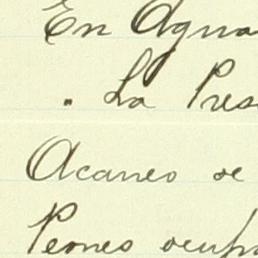 En Agua
. La Pres
Acarreo de
Peones ocup